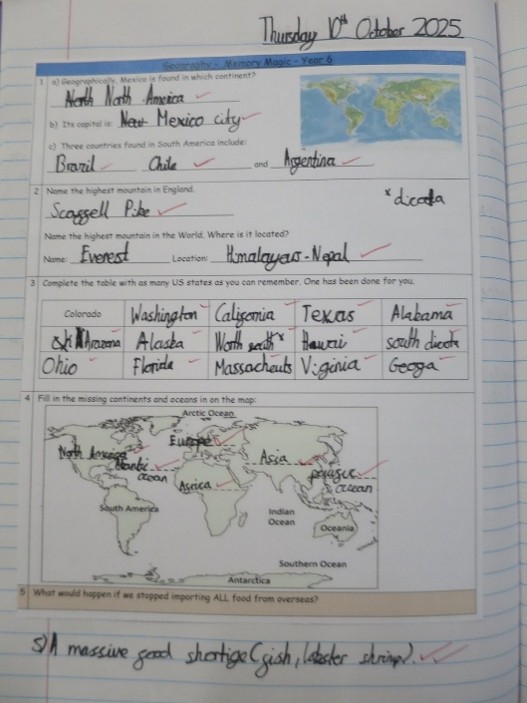 Thursday 10th October 2025
Geography - Memory Magic - Year 6
1 a) Geographically, Mexico is found in which continent?
North North America
b) Its capital is: New Mexico city
c) Three countries found in South America include:
Brazil Chile and Argentina
2 Name the highest mountain in England.
Scaffell Pike
*dicota
Name the highest mountain in the World. Where is it located?
Name: Everest Location: Himalayas - Nepal
3 Complete the table with as many US states as you can remember. One has been done for you.
Colorado Washington Califonia Texas Alabama
Arazona Alaska North south* Hawai south dicote
Ohio Florida Massacheuts Virginia Geoga
4 Fill in the missing continents and oceans in on the map:
Arctic Ocean
North America Europe
Atlantic ocean Asia
Africa ocean
South America Indian Ocean Oceania
Southern Ocean
Antarctica
5 What would happen if we stopped importing ALL food from overseas?
5) A massive food shortige (fish, lobster shrimp).